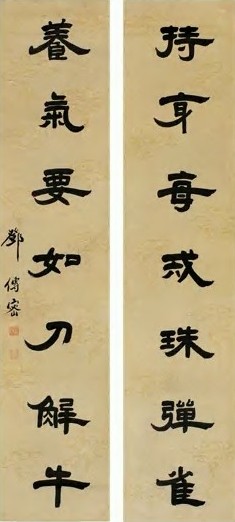 持身每戒珠彈雀
養氣要如刀解牛
鄧傳密